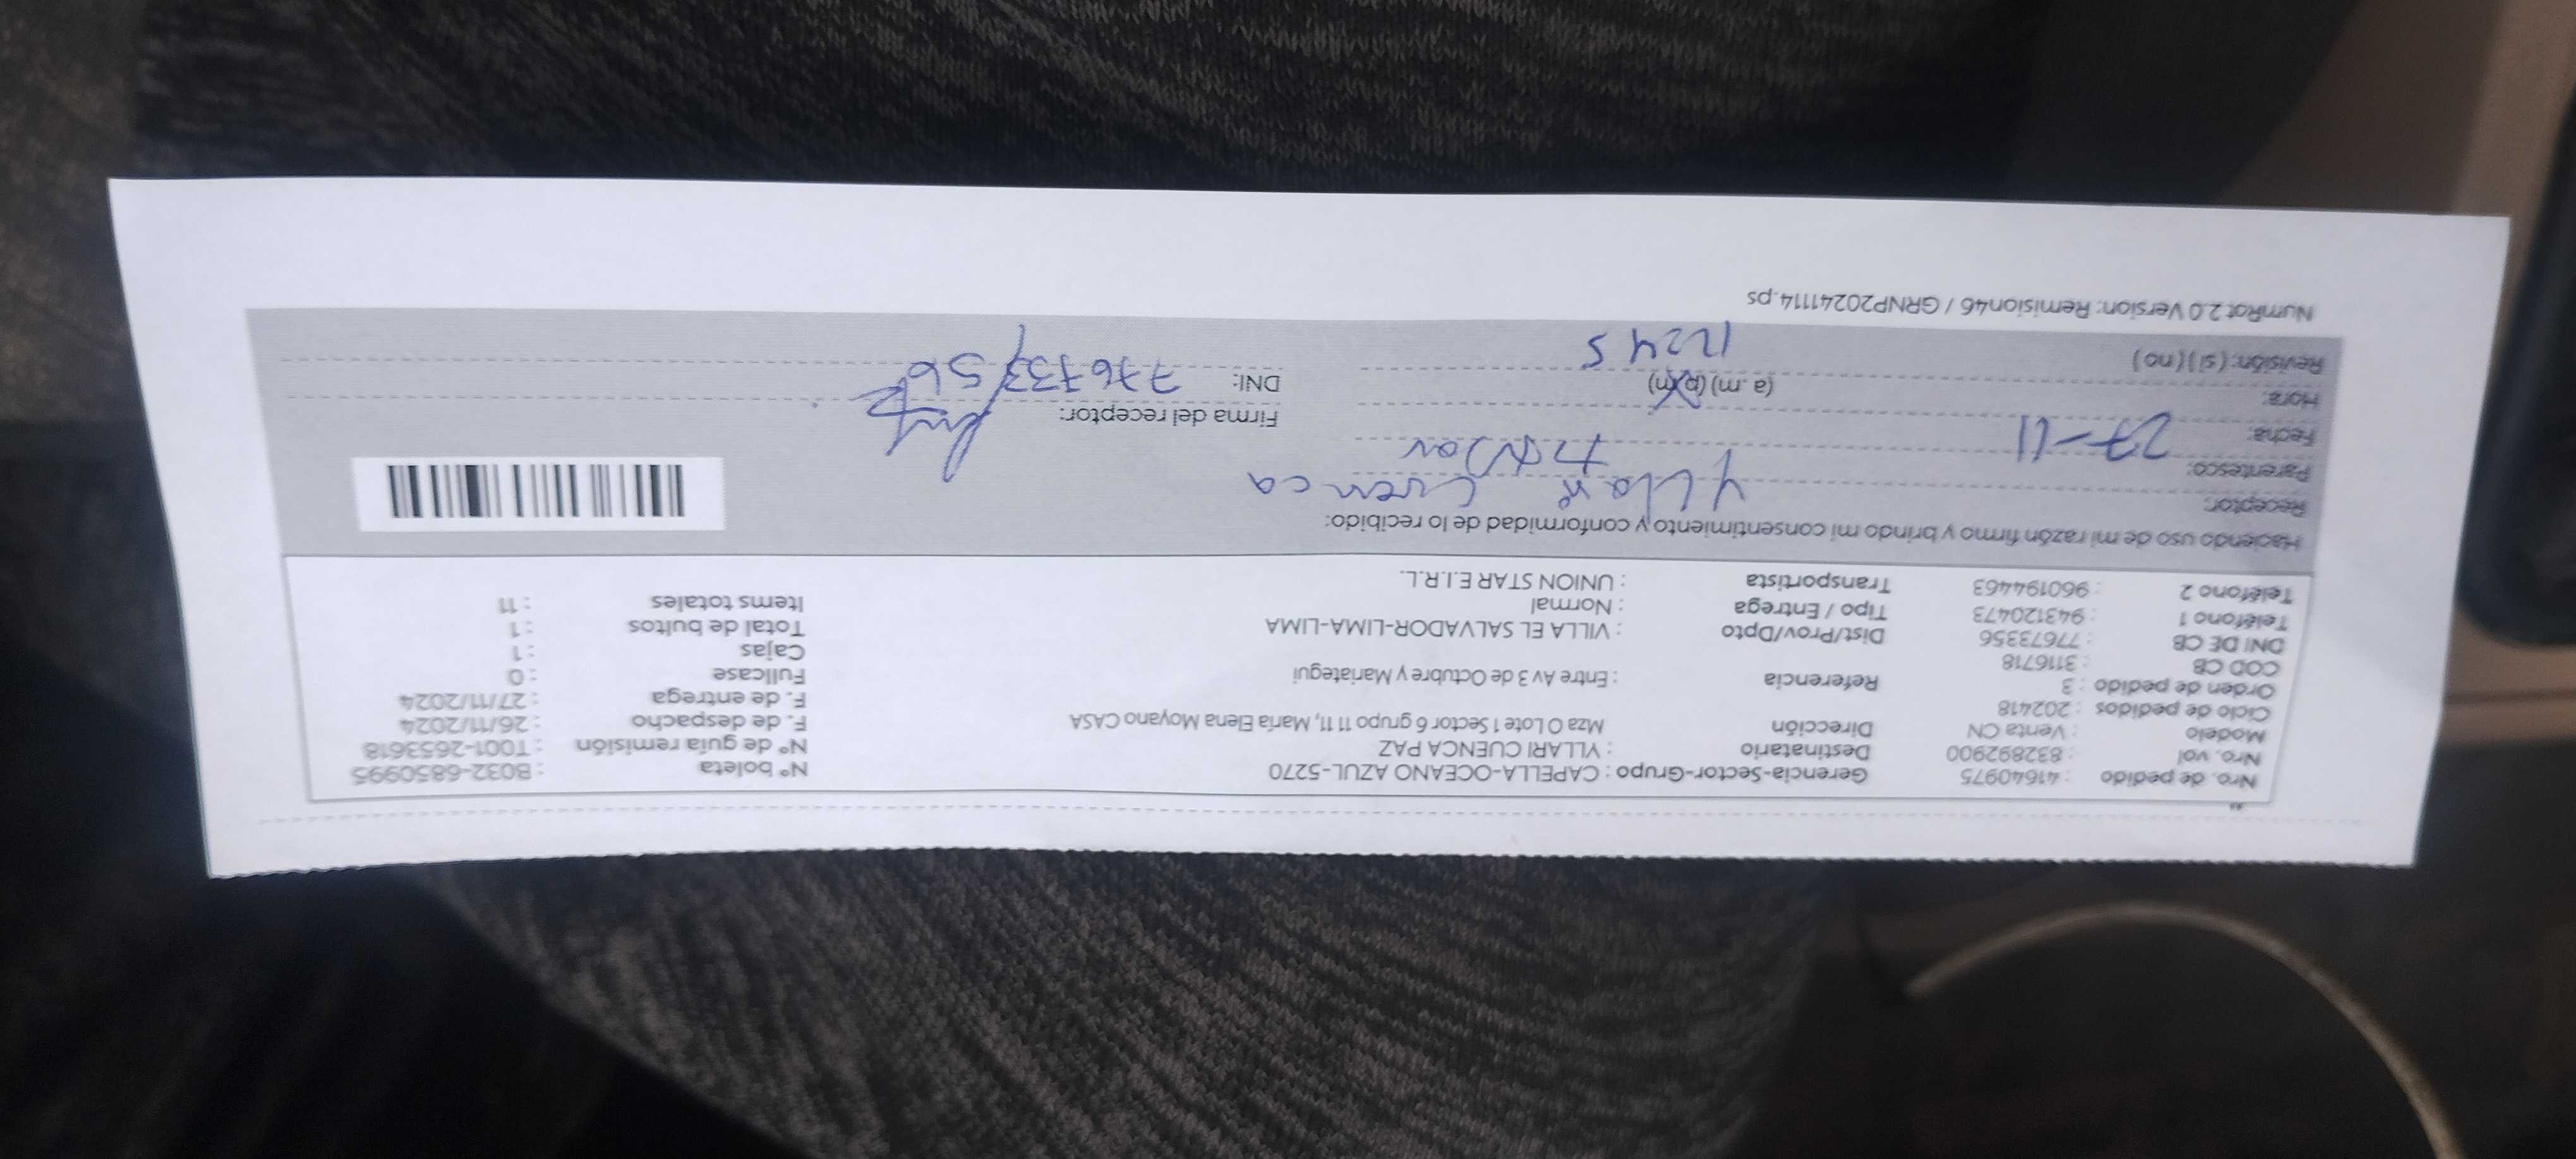 Nro. de pedido : 41640975 Gerencia-Sector-Grupo : CAPELLA-OCEANO AZUL-5270 N° boleta : B032-6850995
Nro. vol : 832892900 Destinatario : YLLARI CUENCA PAZ N° de guía remisión : T001-2653618
Modelo : Venta CN Dirección Mza O Lote 1 Sector 6 grupo 11 11, María Elena Moyano CASA F. de despacho : 26/11/2024
Ciclo de pedidos : 202418 F. de entrega : 27/11/2024
Orden de pedido : 3 Referencia : Entre Av 3 de Octubre y Mariategui Fullcase : 0
COD CB : 3116718 Cajas : 1
DNI DE CB : 77673356 Dist/Prov/Dpto : VILLA EL SALVADOR-LIMA-LIMA Total de bultos : 1
Teléfono 1 : 943120473 Tipo / Entrega : Normal Items totales : 11
Teléfono 2 : 960194463 Transportista : UNION STAR E.I.R.L.
Haciendo uso de mi razón firmo y brindo mi consentimiento y conformidad de lo recibido:
Receptor: Yllari Cuenca
Parentesco:
Fecha: 27-11 Firma del receptor:
Hora: (a.m) (p.m) DNI: 77673356
Revisión: (si) (no) 1245
NumRot 2.0 Version: Remision46 / GRNP20241114.ps